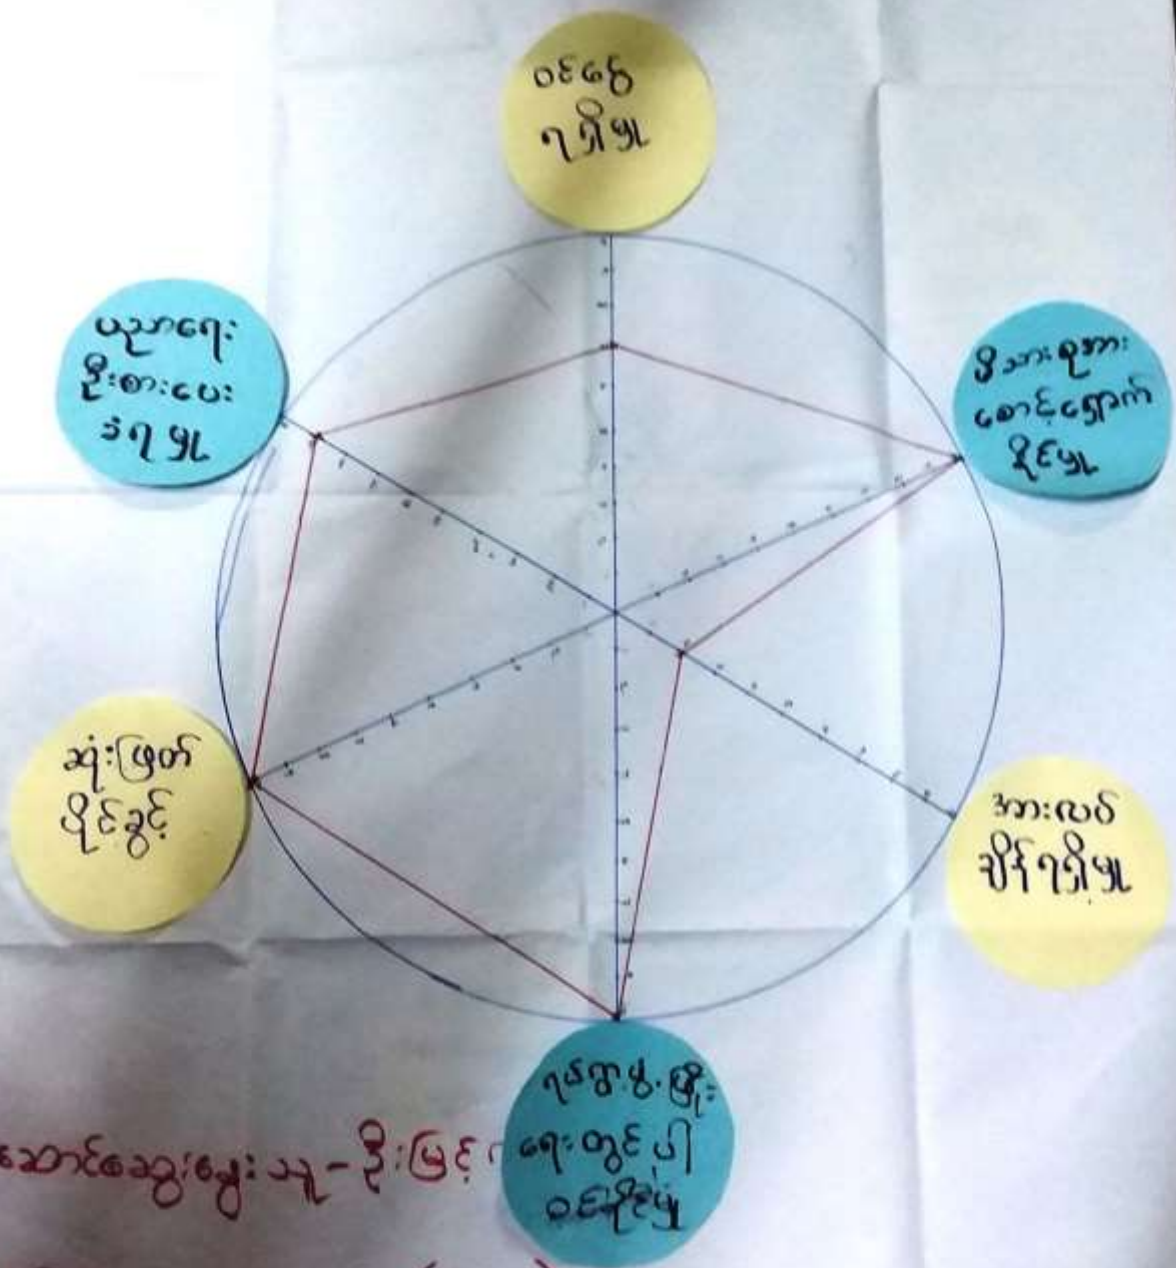 ဝင်ငွေ
ရရှိမှု
ပညာရေး
ဦးစားပေး
ခံရမှု
မိသားစုအား
စောင့်ရှောက်
နိုင်မှု
ဆုံးဖြတ်
ပိုင်ခွင့်
အားလပ်
ချိန်ရရှိမှု
ရပ်ရွာဖွံ့ဖြိုး
ရေးတွင် ပါ
ဝင်နိုင်မှု
ဆောင်ဆွေးနွေးသူ - ဦးမြင့်